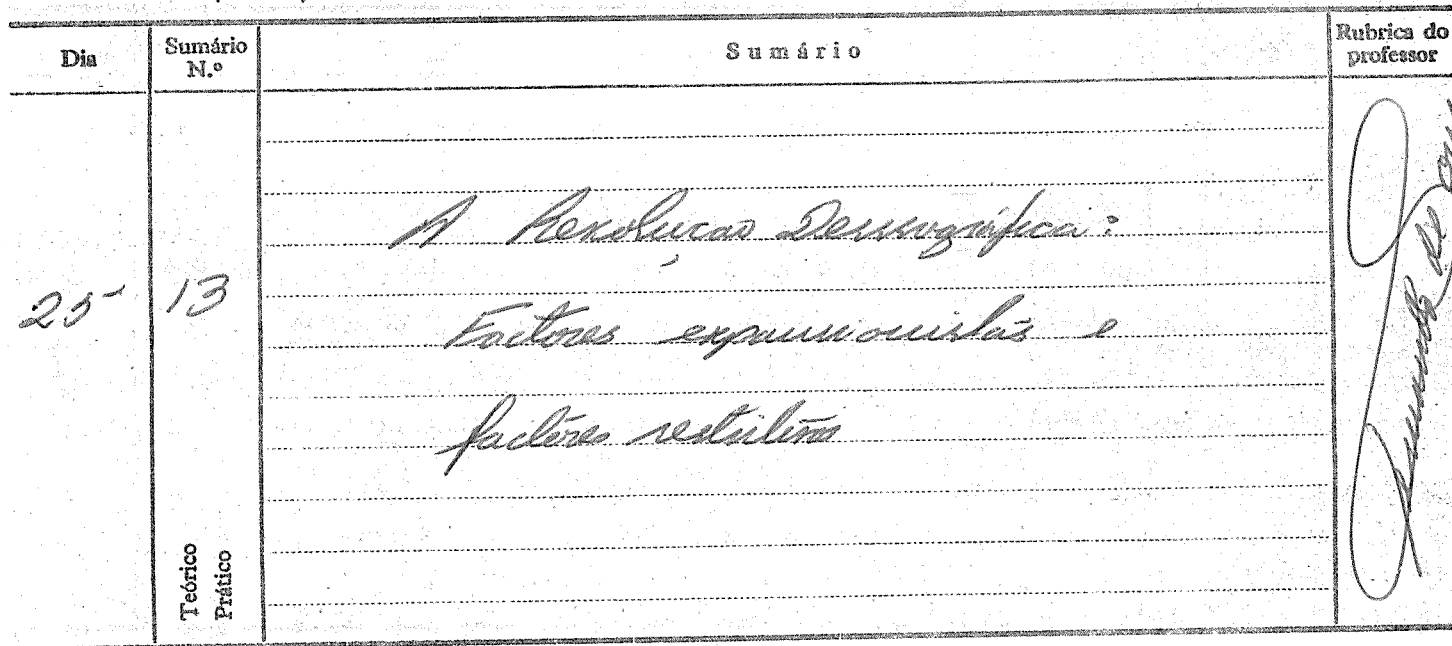 Dia
Sumário N.º
Sumário
Rubrica do professor
A Revolução Demográfica:
25 13
Factores expansionistas e
factores restritivos
Teórico
Prático